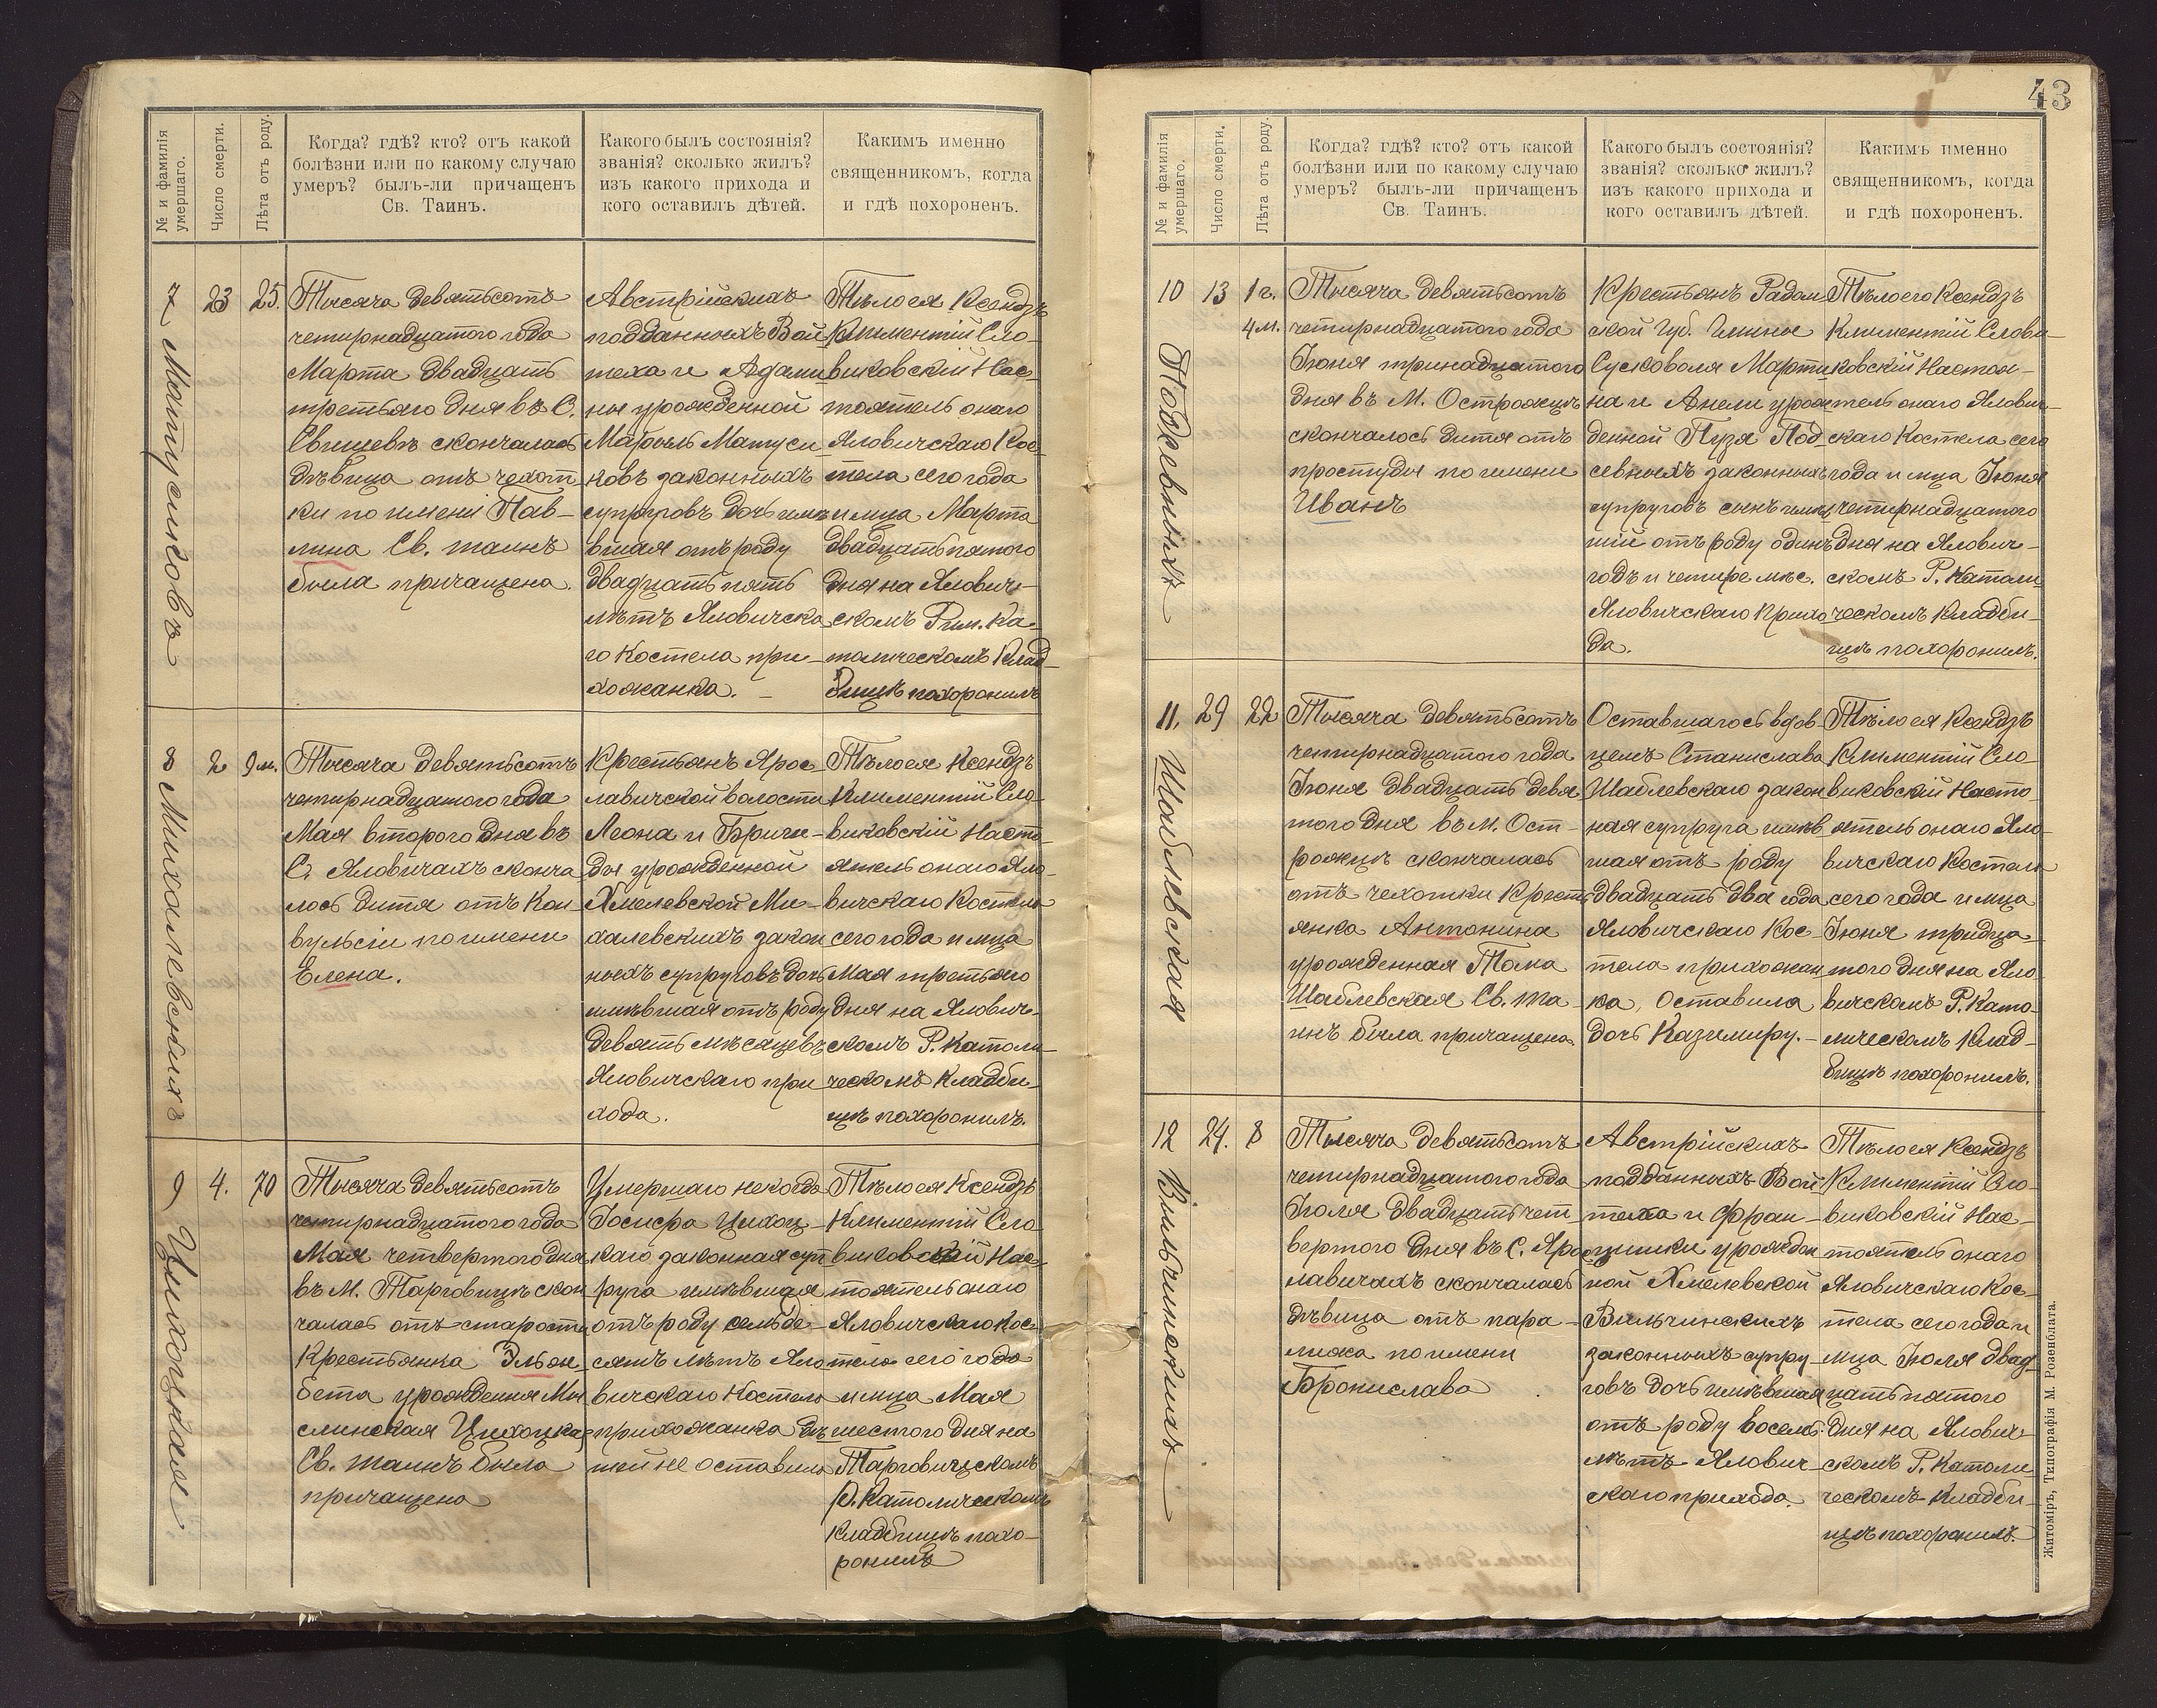 № и фамилія умершаго.
Число смерти.
Лѣта отъ роду.
Когда? гдѣ? кто? отъ какой
болѣзни или по какому случаю
умеръ? былъ-ли причащенъ
Св. Таинъ.
Какого былъ состоянія?
званія? сколько жилъ?
изъ какого прихода и
кого оставилъ дѣтей.
Какимъ именно
священникомъ, когда
и гдѣ похороненъ.
7 Матусиковъ
23
25.
Тысяча девятьсотъ
четирнадцатого года
Марта двадцать
третьяго дня въ С.
Свищевѣ скончалась
дѣвица отъ чехот
ки по имені Пав-
лина Св. таинъ
была причащена.
Австрійскихъ
подданныхъ Вой
теха и Адами
ны урожденной
Мароель Матуси
ковъ законныхъ
супруговъ дочь имѣ
вшая отъ роду
двадцать пять
лѣтъ Яловичска
го Костела при-
хожанка. -
Тѣло ея Ксендзъ
Климентій Сло-
виковскій Нас-
тоятель онаго
Яловичскаго Кос-
тела сего года
и мца Марта
двадцать пятого
дня на Ялович-
скомъ Рим. Ка-
толическомъ Клад-
бищѣ похоронилъ
8 Михалевскихъ
2
9 м.
Тысяча девятьсотъ
четирнадцатого года
Мая второго дня въ
С. Яловичахъ сконча
лось дитя отъ Кон
вульсіи по имени
Елена.
Крестьянъ Ярос-
лавичской волости
Леона и Бриги-
ды урожденной
Хмелевской Ми-
халевскихъ закон
ныхъ супруговъ дочь
имѣвшая отъ роду
девять мѣсяцевъ
Яловичскаго при
хода.
Тѣло ея Ксендзъ
Климентій Сло-
виковскій Насто-
ятель онаго Яло-
вичскаго Костела
сего года и мца
Мая третьяго
дня на Ялович-
скомъ Р. Католи-
ческомъ Кладби-
щѣ похоронилъ.
9 Цихоцкая
4.
70
Тысяча девятьсотъ
четирнадцатого года
Мая четвертого дня
въ М. Торговицѣ скон
чалась отъ старости
Крестьянка Эльж
бета урожденная Мы
слинская Цихоцкая
Св. таинъ была
причащена
Умершаго некогда
Іосифа Цихоц-
каго законная суп
руга имѣвшая
отъ роду семьде-
сятъ лѣтъ Яло
вичскаго Костела
прихожанка дѣ
тей не оставила
Тѣло ея Ксендзъ
Климентій Сло
виковскій Нас-
тоятель онаго
Яловичскаго Кос
тела сего года
и мца Мая
шестого дня на
Торговицскомъ
Р. Католическомъ
Кладбищѣ похо-
ронилъ
43
№ и фамилія умершаго.
Число смерти.
Лѣта отъ роду.
Когда? гдѣ? кто? отъ какой
болѣзни или по какому случаю
умеръ? былъ-ли причащенъ
Св. Таинъ.
Какого былъ состоянія?
званія? сколько жилъ?
изъ какого прихода и
кого оставилъ дѣтей.
Какимъ именно
священникомъ, когда
и гдѣ похороненъ.
10 Подсевныхъ
13
1 г.
4 м.
Тысяча девятьсотъ
четирнадцатого года
Іюня тринадцатого
дня въ М. Острожцѣ
скончалось дитя отъ
простуды по имени
Иванъ
Крестьянъ Радом
ской Губ. Гмины
Сусковоля Марти
на и Анели урож
денной Пузя Под
севныхъ законныхъ
супруговъ сынъ имѣ
шій отъ роду одинъ
годъ и четире мѣс.
Яловичскаго Прихо
да.
Тѣло его Ксендзъ
Климентій Слови-
ковскій Настоя-
тель онаго Ялович-
скаго Костела сего
года и мца Іюня
четирнадцатого
дня на Ялович-
скомъ Р. Католи-
ческомъ Кладби-
щѣ похоронилъ.
11. Шаблевская
29
22
Тысяча девятьсотъ
четирнадцатого года
Іюня двадцать девя
того дня въ М. Ост-
рожцѣ скончалась
отъ чехотки Кресть
янка Антонина
урожденная Тома
Шаблевская Св. та
инъ была причащена.
Оставшагось вдов
цемъ Станислава
Шаблевскаго закон
ная супруга имѣв
шая отъ роду
двадцать два года
Яловичскаго Кос-
тела прихожан
ка, Оставила
дочь Казимиру. -
Тѣло ея Ксендзъ
Климентій Сло-
виковскій Насто-
ятель онаго Яло-
вичскаго Костела
сего года и мца
Іюня тридца-
того дня на Яло-
вичскомъ Р. Като-
лическомъ Клад-
бищѣ похоронилъ.
12 Вильчинскихъ
24.
8
Тысяча девятьсотъ
четирнадцатого года
Іюля двадцать чет
вертого дня въ С. Ярос
лавичахъ скончалась
дѣвица отъ пара-
лижа по имени
Бронислава
Австрійскихъ
подданныхъ Вой
теха и Фран-
цишки урожден
ной Хмелевской
Вильчинскихъ
законныхъ супру-
говъ дочь имѣвшая
отъ роду восемь
лѣтъ Ялович-
скаго прихода.
Тѣло ея Ксендзъ
Климентій Сло-
виковскій Нас-
тоятель онаго
Яловичскаго Кос-
тела сего года и
мца Іюля двад-
цать пятого
дня на Ялович-
скомъ Р. Католи
ческомъ Кладби-
щѣ похоронилъ.
Житоміръ, Типографія М. Розенблата.